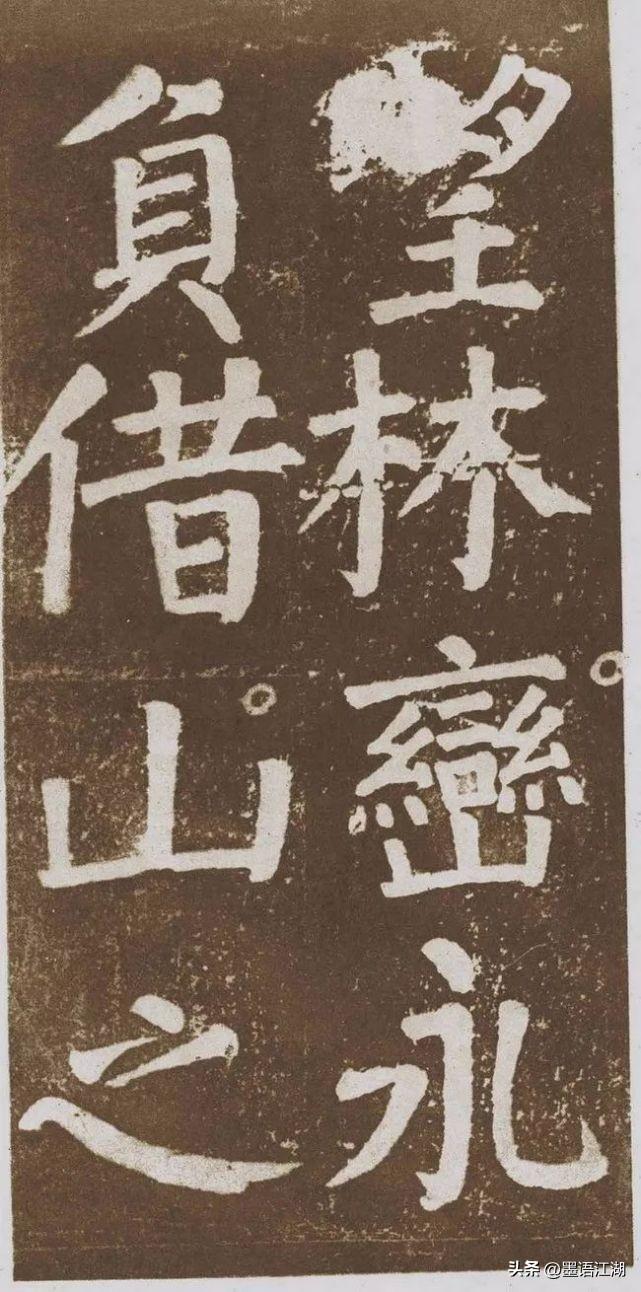 望林巒永
負借山之
头条 @墨语江湖